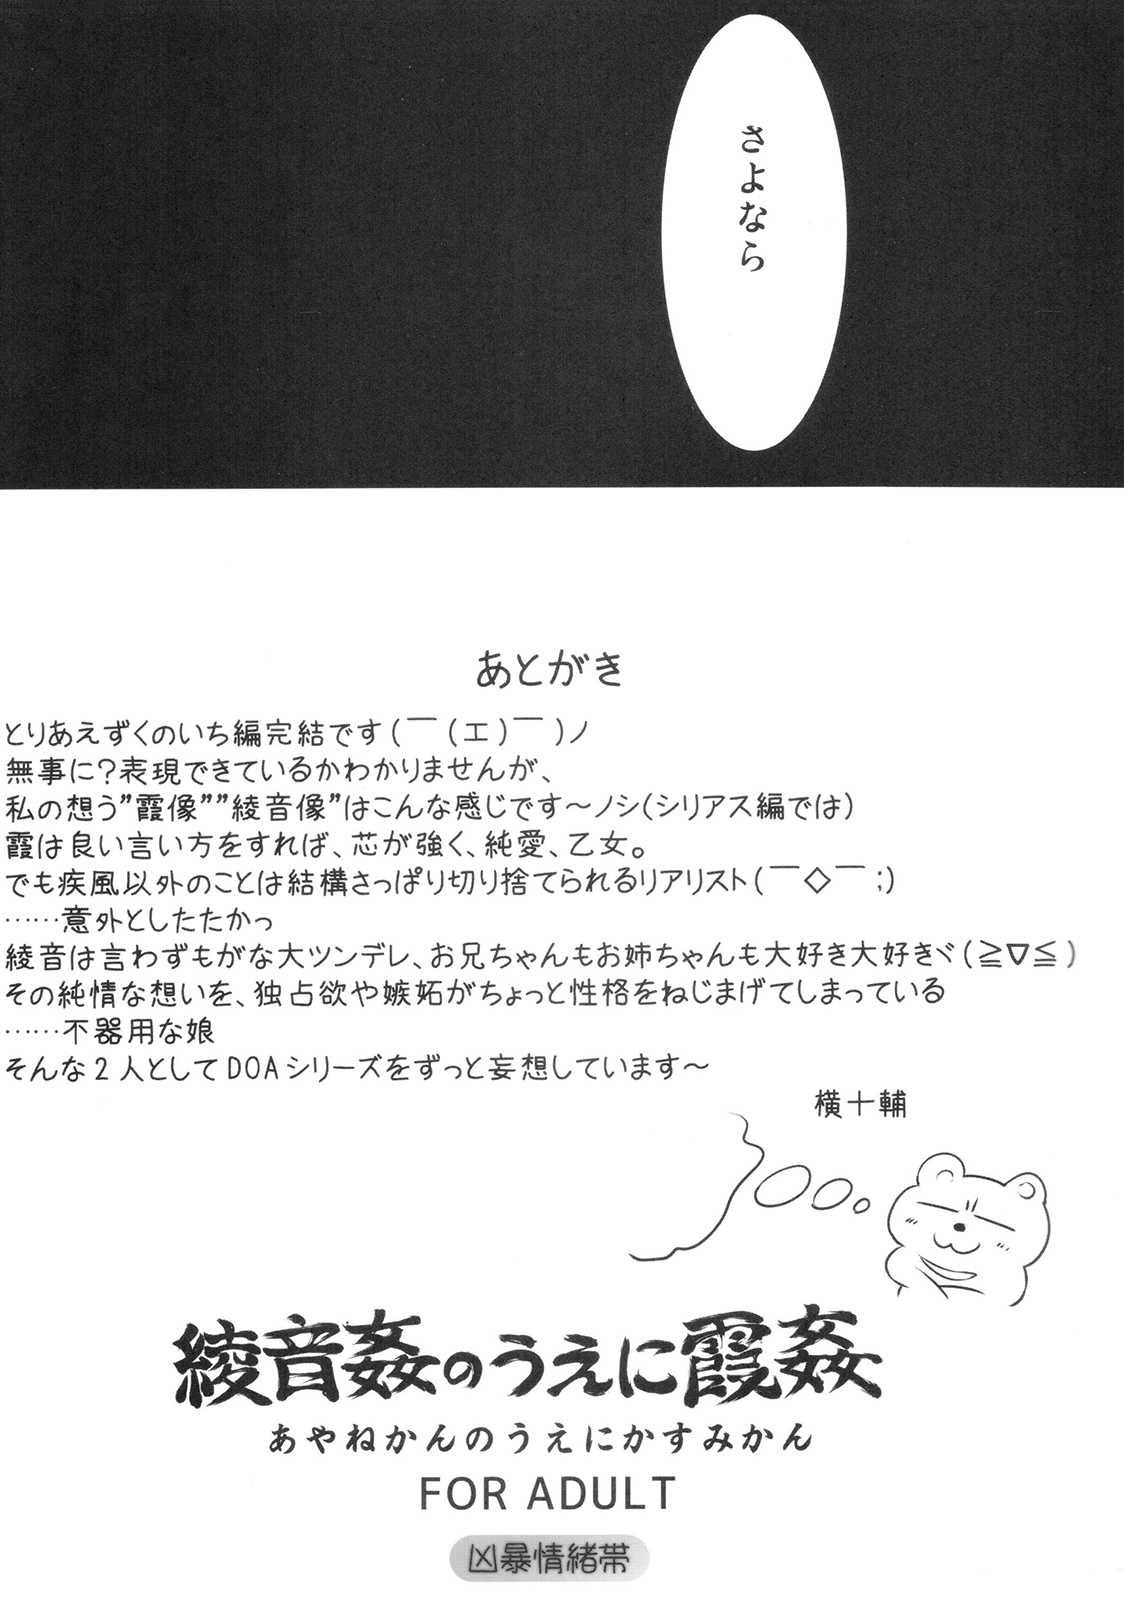 さよなら
あとがき
とりあえずくのいち編完結です(￣(エ)￣)ノ
無事に?表現できているかわかりませんが、
私の想う”霞像””綾音像”はこんな感じです～ノシ(シリアス編では)
霞は良い言い方をすれば、芯が強く、純愛、乙女。
でも疾風以外のことは結構さっぱり切り捨てられるリアリスト(￣◇￣;)
……意外としたたかっ
綾音は言わずもがな大ツンデレ、お兄ちゃんもお姉ちゃんも大好き大好きヾ(≧∇≦)
その純情な想いを、独占欲や嫉妬がちょっと性格をねじまげてしまっている
……不器用な娘
そんな2人としてDOAシリーズをずっと妄想しています～
横十輔
綾音姦のうえに霞姦
あやねかんのうえにかすみかん
FOR ADULT
凶暴情緒帯